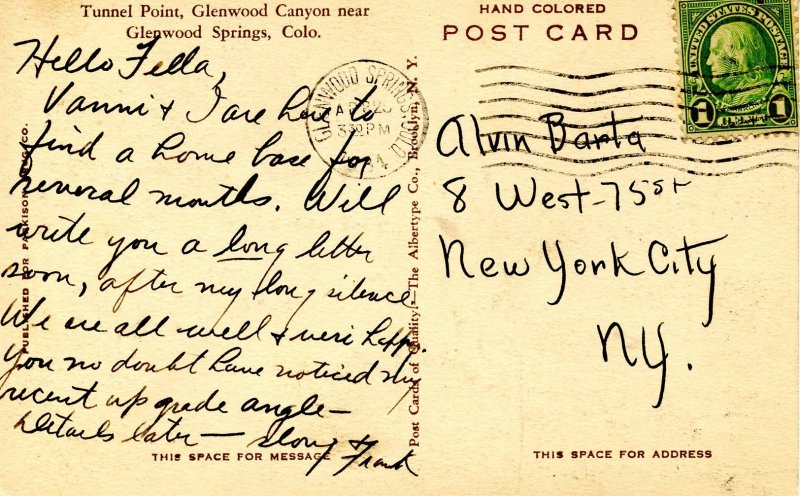 Tunnel Point, Glenwood Canyon near
Glenwood Springs, Colo.
Hello Fella,
Vanni & I are here to
find a home base for
several months. Will
write you a long letter
soon, after my long silence.
We are all well & veri happy.
You no doubt have noticed my
recent up grade angle—
Details later — along &
Frank
THIS SPACE FOR MESSAGE
PUBLISHED FOR PARKISON
CO.
Post Cards of Quality.—The Albertype Co., Brooklyn, N. Y.
HAND COLORED
POST CARD
GLENWOOD SPRINGS COLO.
330PM
UNITED STATES POSTAGE
1 1
Alvin Barta
8 West-75st
New York City
NY.
THIS SPACE FOR ADDRESS